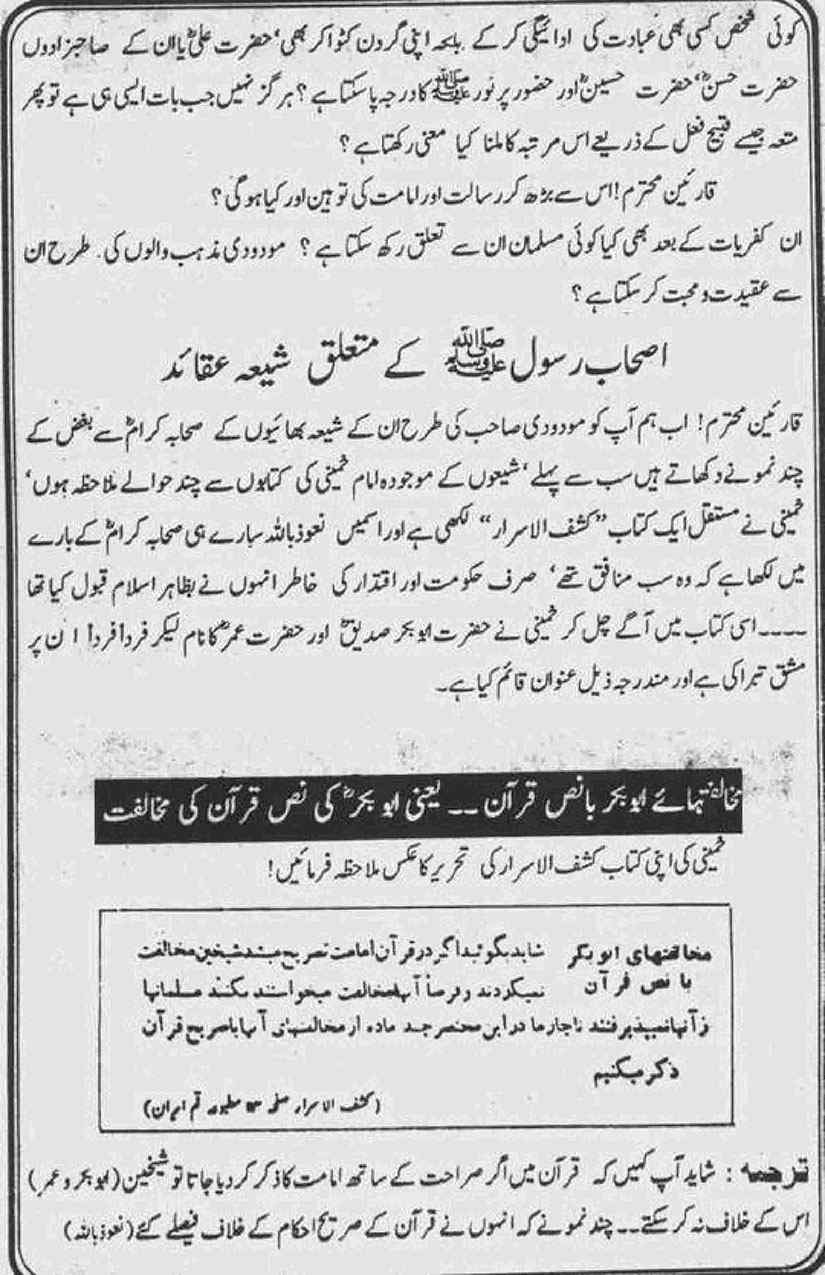 کوئی شخص کسی بھی عبادت کی ادائیگی کر کے بلکہ اپنی گردن کٹوا کر بھی، حضرت علیؓ یا ان کے صاحبزادوں
حضرت حسنؓ، حضرت حسینؓ اور حضور پر نور ﷺ کا درجہ پا سکتا ہے؟ ہرگز نہیں جب بات ایسی ہی ہے تو پھر
متعہ جیسے قبیح فعل کے ذریعے اس مرتبہ کا ملنا کیا معنی رکھتا ہے؟
قارئین محترم! اس سے بڑھ کر رسالت اور امامت کی توہین اور کیا ہوگی؟
ان کفریات کے بعد بھی کیا کوئی مسلمان ان سے تعلق رکھ سکتا ہے؟ مودودی مذہب والوں کی طرح ان
سے عقیدت و محبت کر سکتا ہے؟
اصحاب رسول ﷺ کے متعلق شیعہ عقائد
قارئین محترم! اب ہم آپ کو مودودی صاحب کی طرح ان کے شیعہ بھائیوں کے صحابہ کرامؓ سے بغض کے
چند نمونے دکھاتے ہیں سب سے پہلے، شیعوں کے موجودہ امام خمینی کی کتابوں سے چند حوالے ملاحظہ ہوں،
خمینی نے مستقل ایک کتاب “کشف الاسرار” لکھی ہے اور اسمیں نعوذ باللہ سارے ہی صحابہ کرامؓ کے بارے
میں لکھا ہے کہ وہ سب منافق تھے، صرف حکومت اور اقتدار کی خاطر انہوں نے بظاہر اسلام قبول کیا تھا
۔۔۔۔ اسی کتاب میں آگے چل کر خمینی نے حضرت ابوبکر صدیقؓ اور حضرت عمرؓ کا نام لیکر فرداً فرداً ان پر
مشق تبرا کی ہے اور مندرجہ ذیل عنوان قائم کیا ہے۔
مخالفتہائے ابوبکر بانص قرآن ۔۔ یعنی ابوبکرؓ کی نص قرآن کی مخالفت
خمینی کی اپنی کتاب کشف الاسرار کی تحریر کا عکس ملاحظہ فرمائیں!
مخالفتهای ابوبکر شاید بگوئید اگر در قرآن امامت تصریح میشد شیخین مخالفت
با نص قرآن نمیکردند و فرضاً آنها مخالفت میخواستند بکنند مسلمانها
ز آنها نمیپذیرفتند ناچار ما در این مختصر چند ماده از مخالفتهای آنها با صریح قرآن
ذکر میکنیم
(کشف الاسرار صفحہ ۱۱۴ مطبوعہ قم ایران)
ترجمہ: شاید آپ کہیں کہ قرآن میں اگر صراحت کے ساتھ امامت کا ذکر کر دیا جاتا تو شیخین (ابوبکر و عمر)
اس کے خلاف نہ کر سکتے۔۔ چند نمونے کہ انہوں نے قرآن کے صریح احکام کے خلاف فیصلے کئے (نعوذ باللہ)